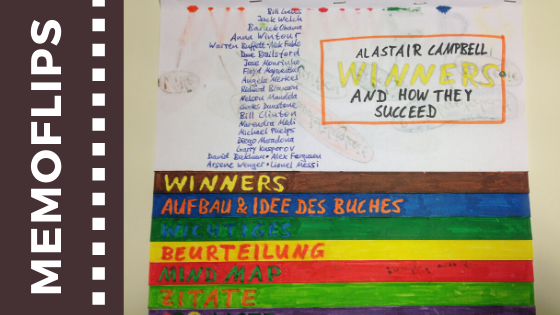 MEMOFLIPS
Bill Gates
Jack Welch
Barack Obama
Anna Wintour
Warren Buffett • Nick Faldo
Dave Brailsford
Jose Mourinho
Floyd Mayweather
Angela Merkel
Richard Branson
Nelson Mandela
Charles Dunstone
Bill Clinton
Narendra Modi
Michael Phelps
Diego Maradona
Garry Kasparov
David Beckham • Alex Ferguson
Arsene Wenger • Lionel Messi
ALASTAIR CAMPBELL
WINNERS
AND HOW THEY
SUCCEED
WINNERS
AUFBAU & IDEE DES BUCHES
WICHTIGES
BEURTEILUNG
MIND MAP
ZITATE